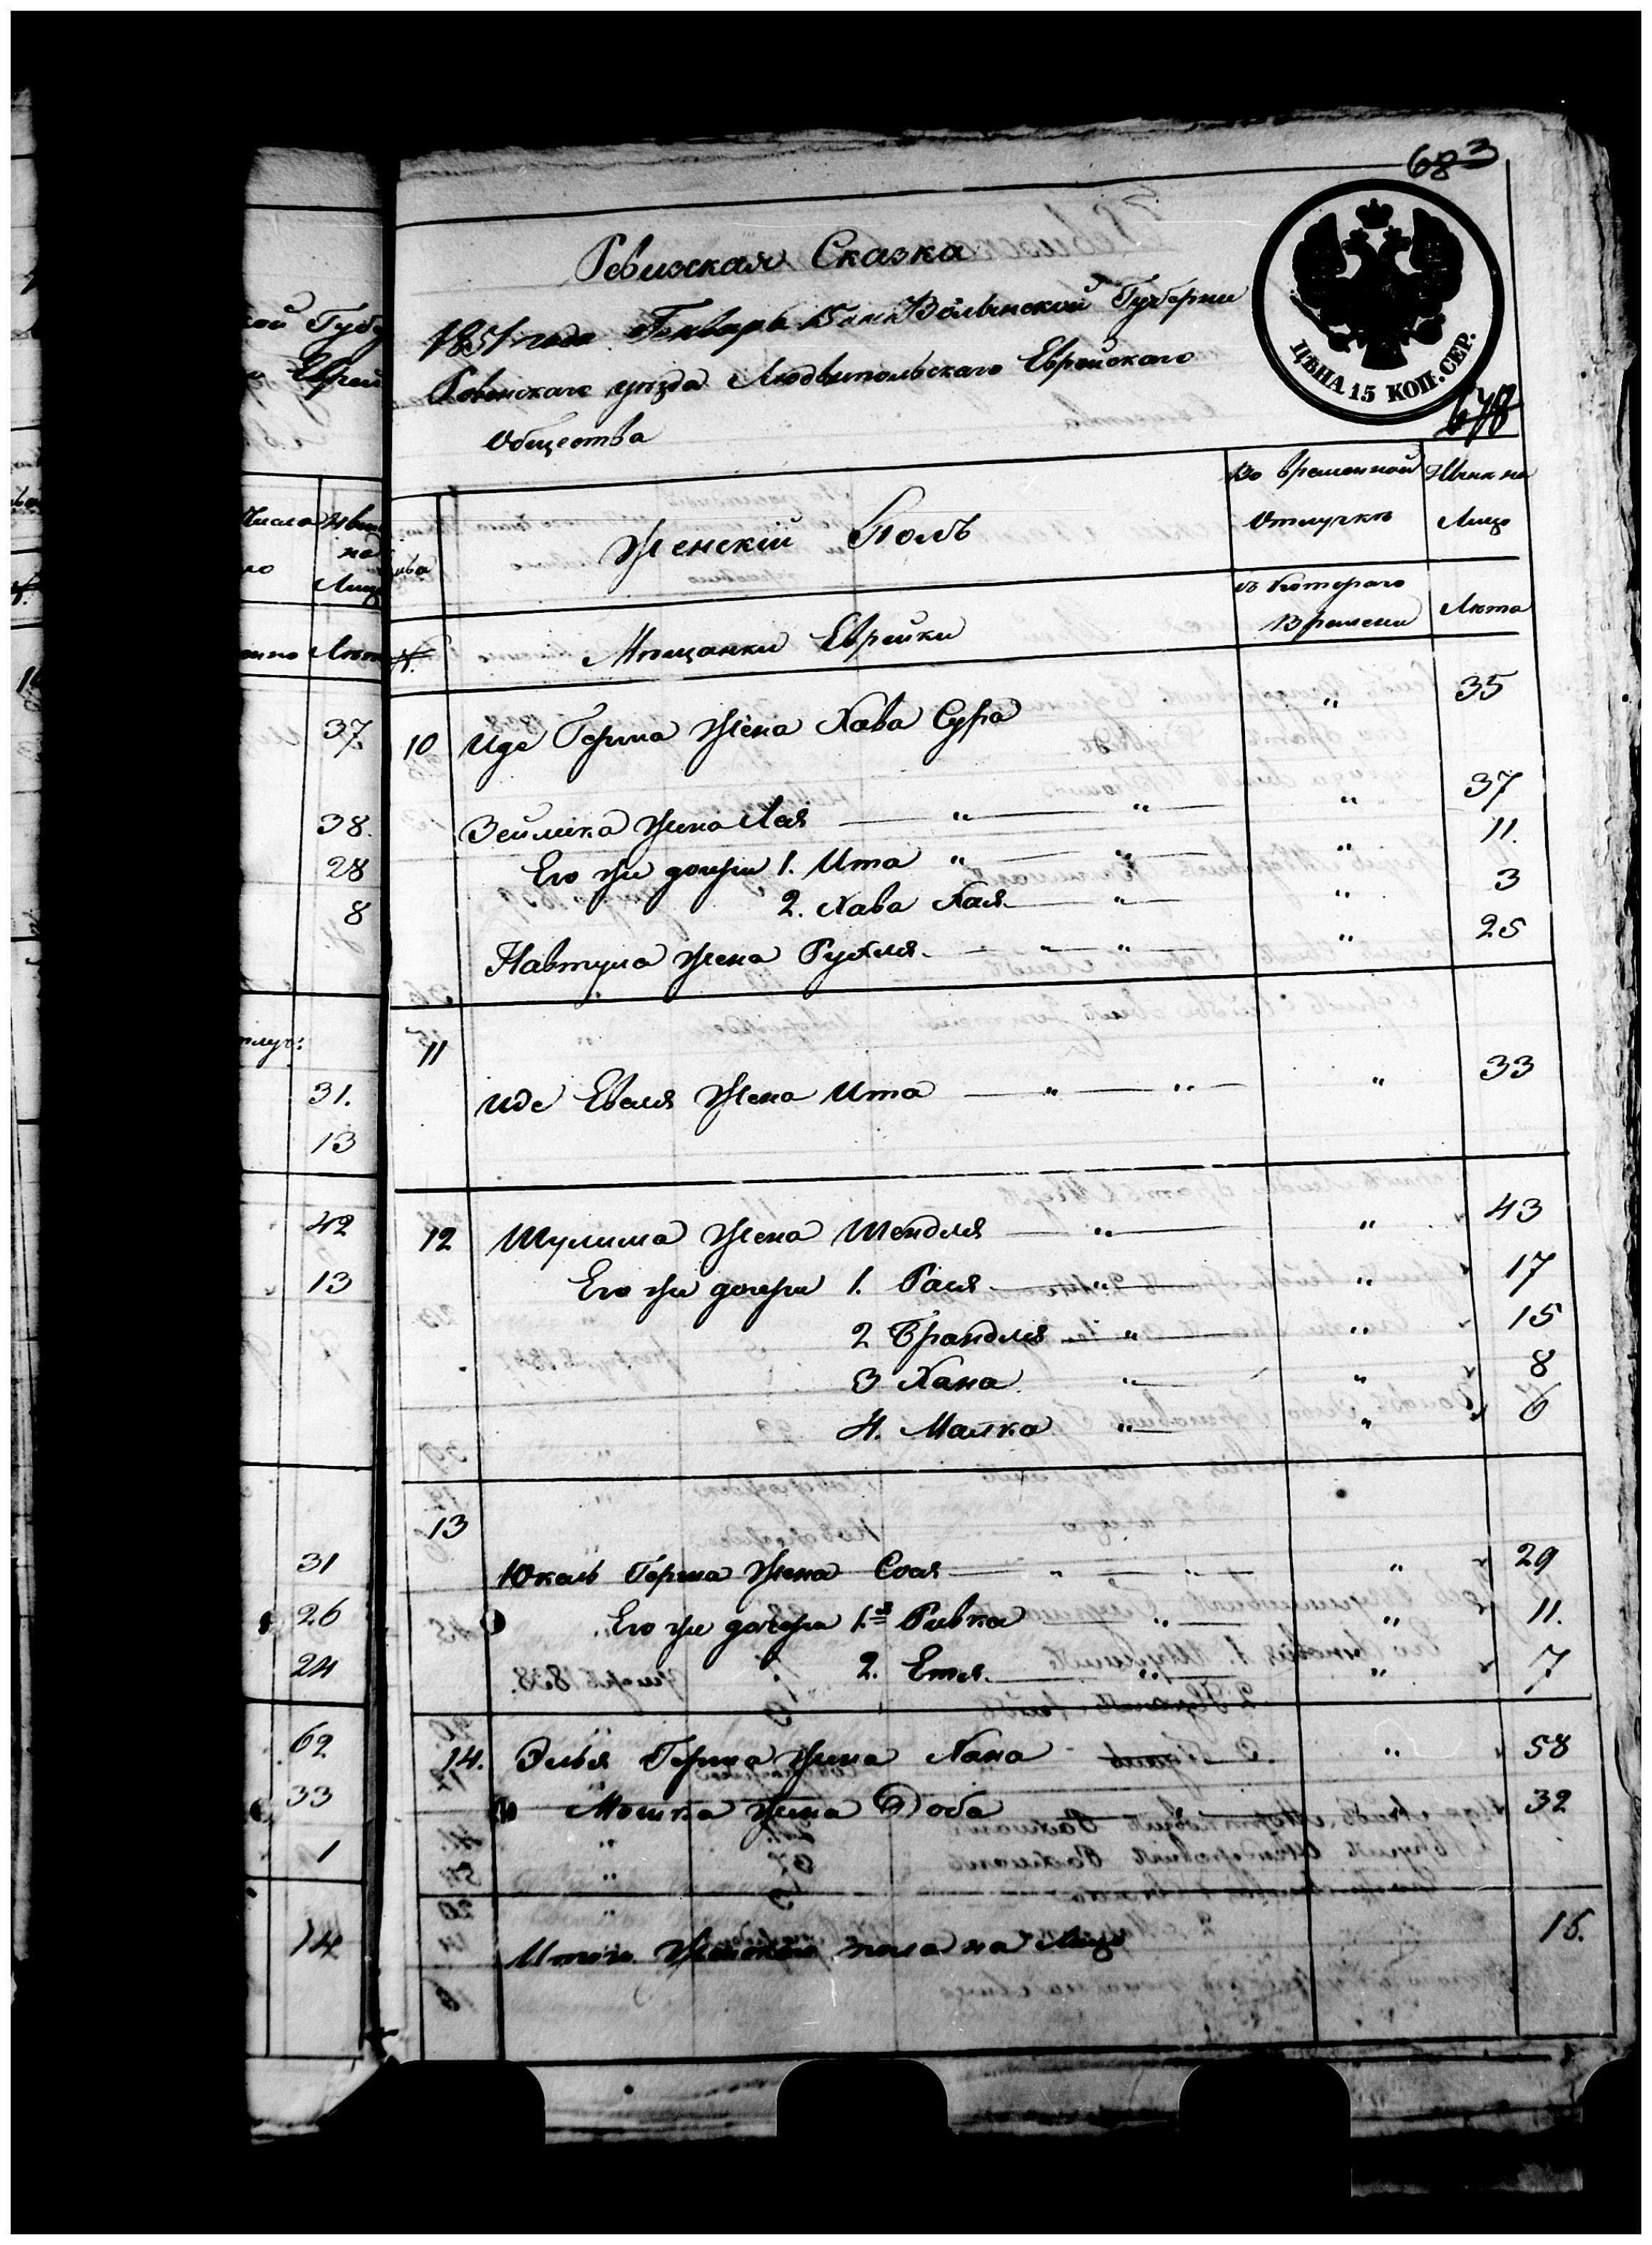 683
Ревизская Сказка
1851 года Генваря 15 дня Волынской Губернии
Ровенскаго уезда Людвипольскаго Еврейскаго
Общества
ЦѢНА 15 КОП. СЕР.
678
Женскій Полъ
Во временной Отлучкѣ
Ныне на Лицо
Мещанки Еврейки
съ Котораго Времени
Лета
10 Иде Герша Жена Хава Сура " 35
Зейлика жена Лея " " " 37
Его же дочери 1. Ита " " " 11.
2. Хава Хая " " 3
Навтула жена Рухля " " " 25
11
Иде Евеля Жена Ита " " " 33
12 Шулима Жена Шендля " " 43
Его же дочери 1. Рася " " 17
2 Брандля " " 15
3 Хана " " 8
4. Малка " " 6
13
Юкель Герша Жена Сося " " " 29
Его же дочери 1я Ривка " " 11.
2. Етля " " 7
14. Элья Герша жена Хана " 58
Мошка жена Доба " 32
Итого Женскаго пола на Лицо 15.
ой Губе
Еврей
Числа
на
Лицо
Лета
37.
38.
28
8
31.
13
42
13
31
26
24
62
33
1
14